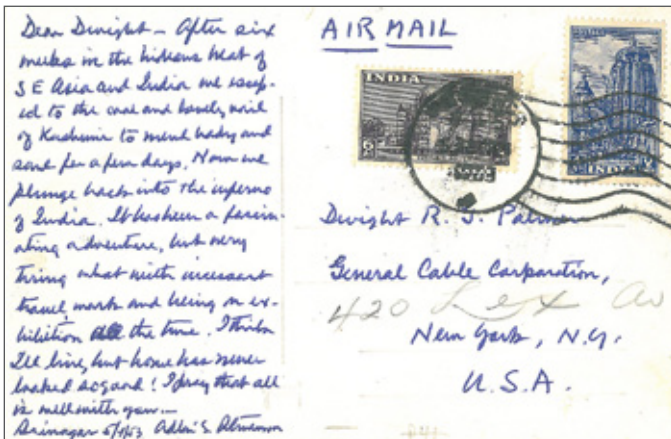 Dear Dwight – After six
weeks in the hideous heat of
S E Asia and India we escap-
ed to the cool and lovely vail
of Kashmir to mend body and
soul for a few days. Now we
plunge back into the inferno
of India. It has been a fascin-
ating adventure, but very
tiring what with incessant
travel, work and being on ex-
hibition all the time. I think
I'll live, but home has never
looked so good! I pray that all
is well with you –
Srinagar 5/ /53 Adlai S. Stevenson
AIR MAIL
INDIA
INDIA
Dwight R. G. Palmer
General Cable Corporation,
420 Lex Av
New York, N.Y.
U.S.A.